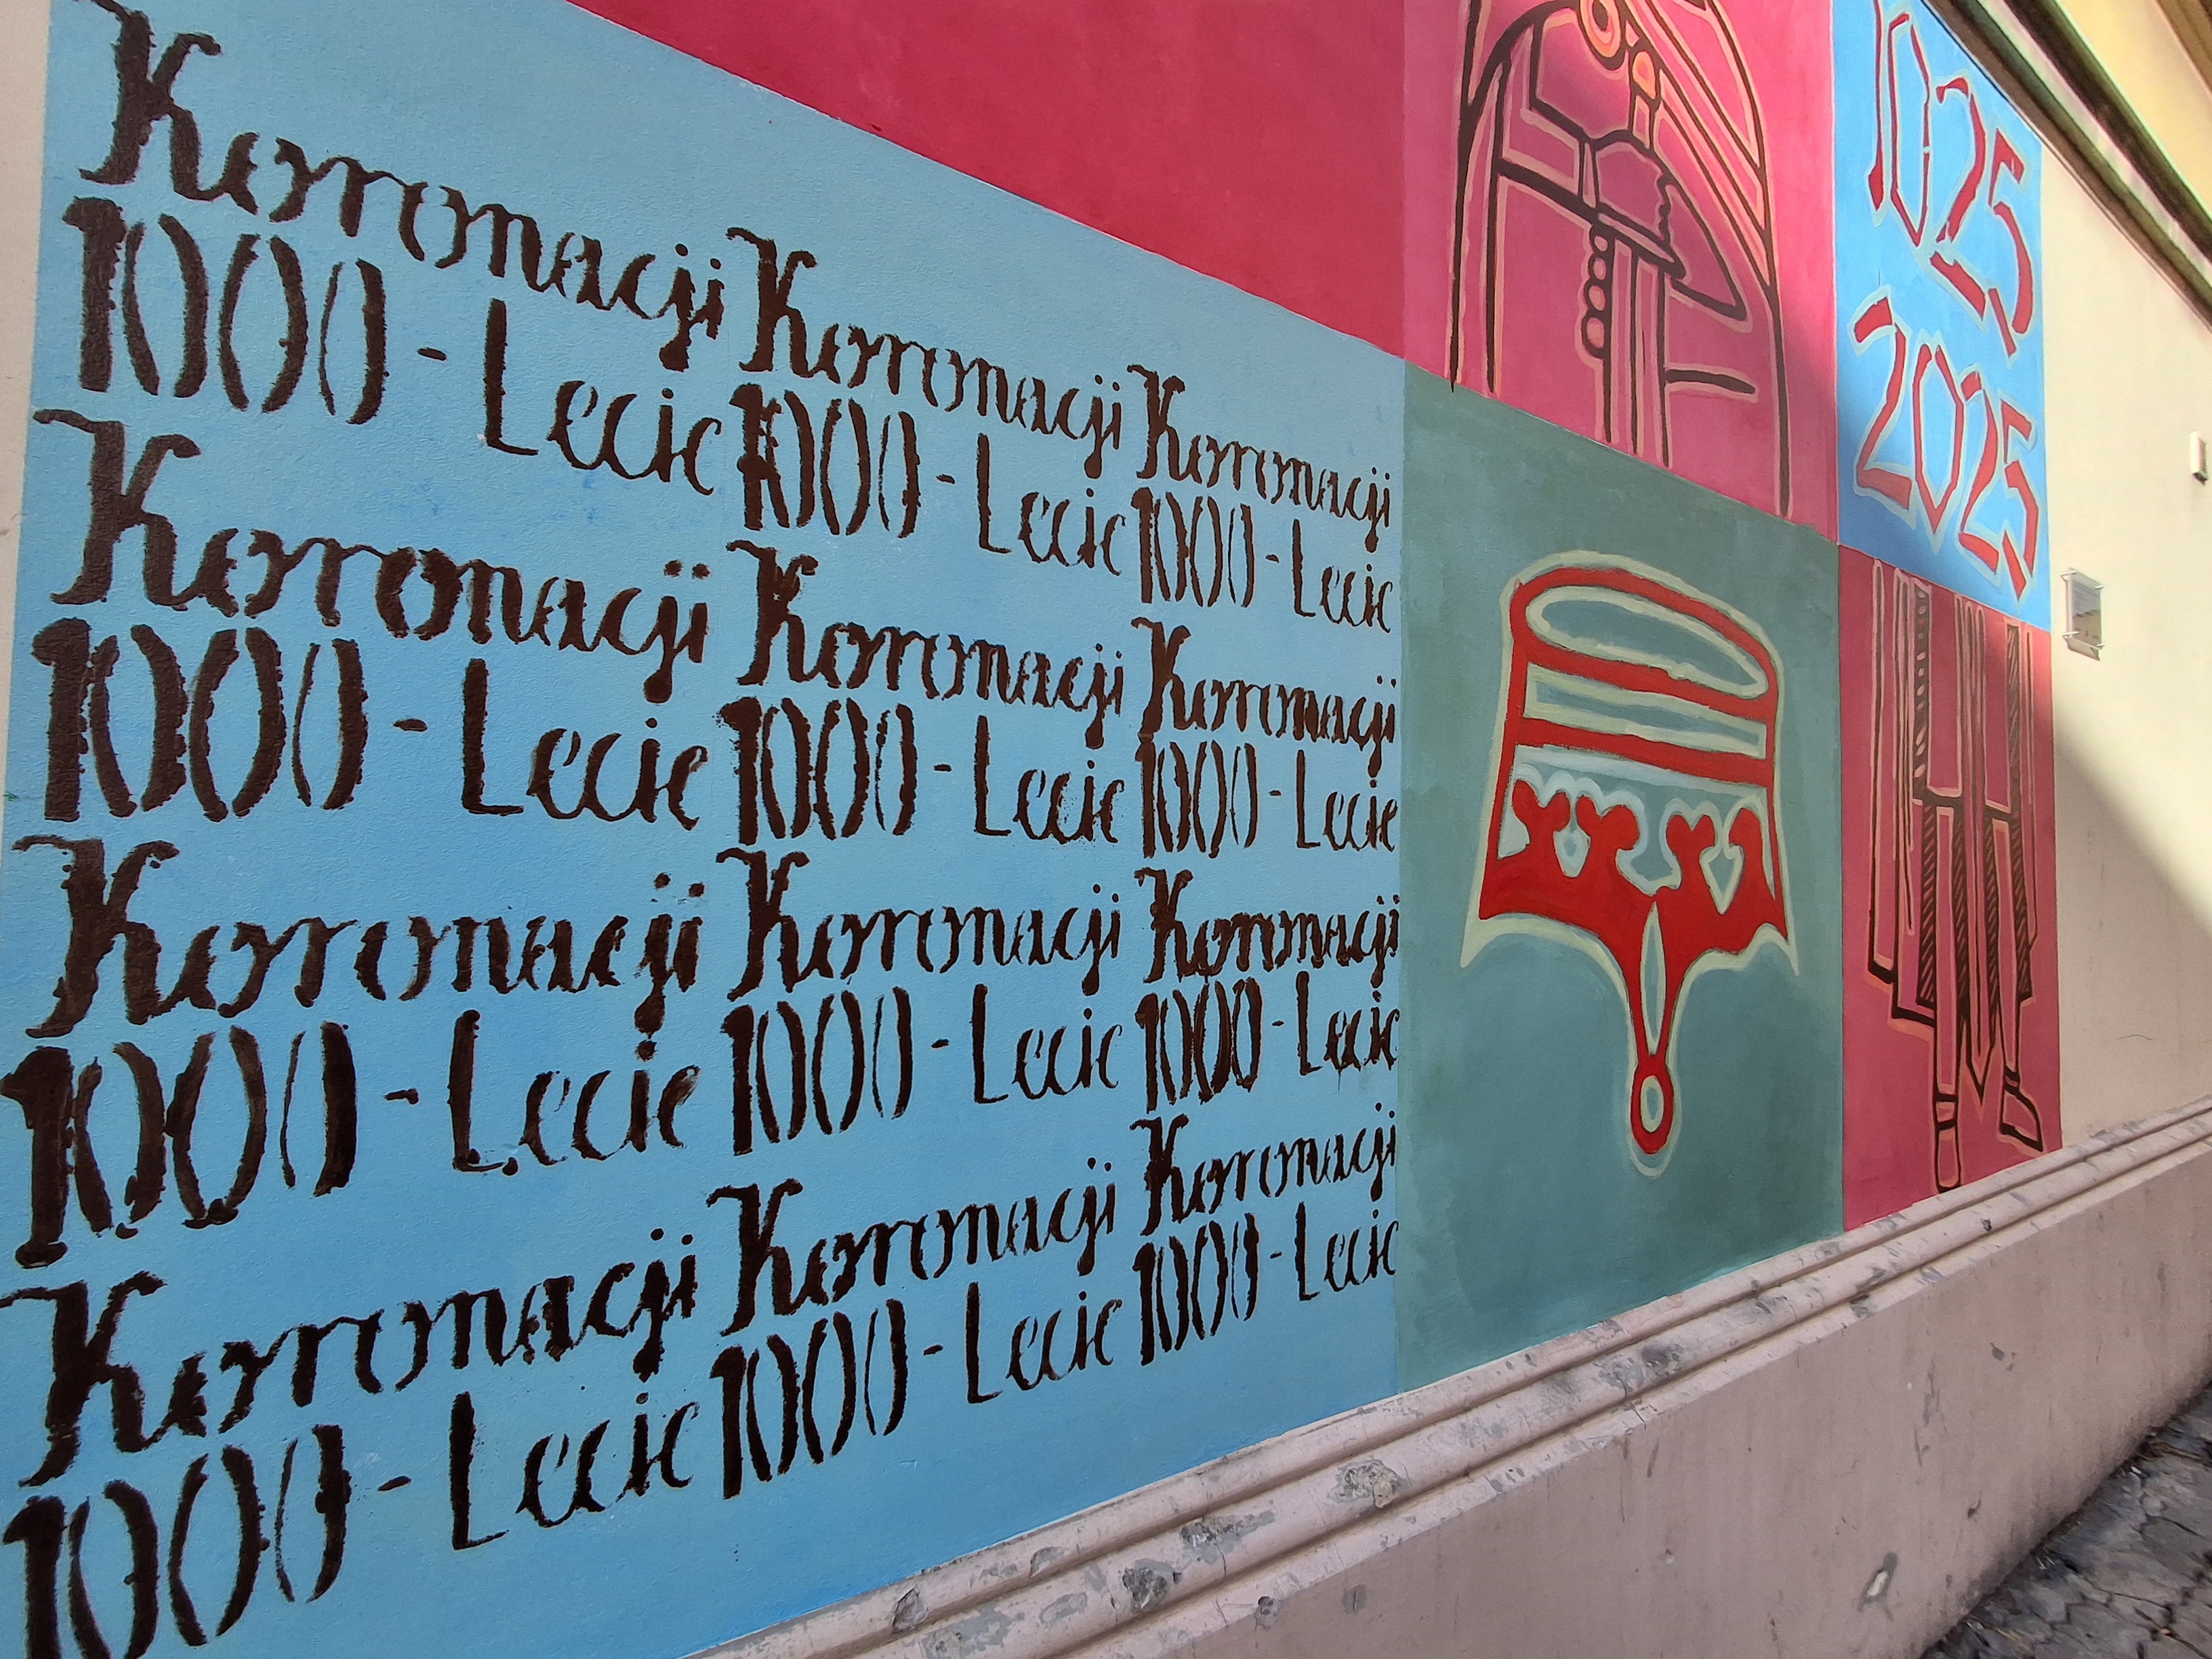 Koronacji Koronacji Koronacji
1000 - Lecie 1000 - Lecie 1000 - Lecie
Koronacji Koronacji Koronacji
1000 - Lecie 1000 - Lecie 1000 - Lecie
Koronacji Koronacji Koronacji
1000 - Lecie 1000 - Lecie 1000 - Lecie
Koronacji Koronacji Koronacji
1000 - Lecie 1000 - Lecie 1000 - Lecie
1025
2025